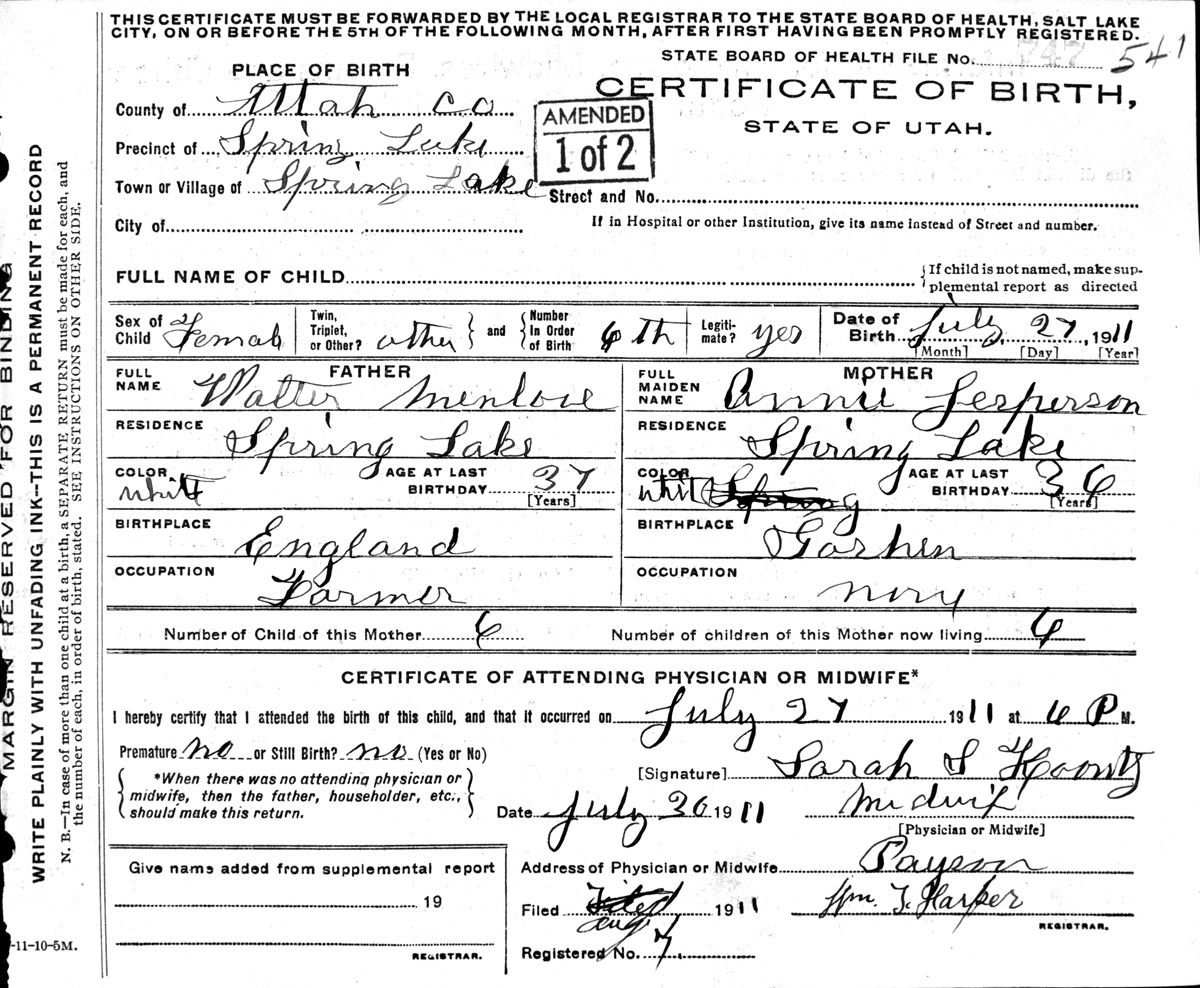 THIS CERTIFICATE MUST BE FORWARDED BY THE LOCAL REGISTRAR TO THE STATE BOARD OF HEALTH, SALT LAKE
CITY, ON OR BEFORE THE 5TH OF THE FOLLOWING MONTH, AFTER FIRST HAVING BEEN PROMPTLY REGISTERED.
STATE BOARD OF HEALTH FILE No. 747 541
PLACE OF BIRTH
CERTIFICATE OF BIRTH,
STATE OF UTAH.
County of Uttah Co
AMENDED
1 of 2
Precinct of Spring Lake
Town or Village of Spring Lake
Street and No.
City of
If in Hospital or other Institution, give its name instead of Street and number.
FULL NAME OF CHILD
If child is not named, make sup-
plemental report as directed
Sex of Child Femal
Twin, Triplet, or Other? other and Number In Order of Birth 6 th
Legiti-mate? yes
Date of Birth July 27, 1911
[Month] [Day] [Year]
FATHER
FULL NAME Walter Menlove
RESIDENCE Spring Lake
COLOR white AGE AT LAST BIRTHDAY 37
[Years]
BIRTHPLACE England
OCCUPATION Farmer
MOTHER
FULL MAIDEN NAME Annie Jesperson
RESIDENCE Spring Lake
COLOR whit Spring AGE AT LAST BIRTHDAY 36
[Years]
BIRTHPLACE Goshen
OCCUPATION
Number of Child of this Mother 6 Number of children of this Mother now living 6
CERTIFICATE OF ATTENDING PHYSICIAN OR MIDWIFE*
I hereby certify that I attended the birth of this child, and that it occurred on July 27 1911 at 6 P M.
Premature no or Still Birth? no (Yes or No)
[Signature] Sarah S Koontz
*When there was no attending physician or
midwife, then the father, householder, etc.,
should make this return.
Date July 30 1911 Midwif
[Physician or Midwife]
Give name added from supplemental report
19
REGISTRAR.
Address of Physician or Midwife Payson
Filed Filed Aug 1911 Wm. T. Harper
REGISTRAR.
Registered No. 7
MARGIN RESERVED FOR BINDING
WRITE PLAINLY WITH UNFADING INK--THIS IS A PERMANENT RECORD
N. B.—In case of more than one child at a birth, a SEPARATE RETURN must be made for each, and
the number of each, in order of birth, stated. SEE INSTRUCTIONS ON OTHER SIDE.
-11-10-5M.